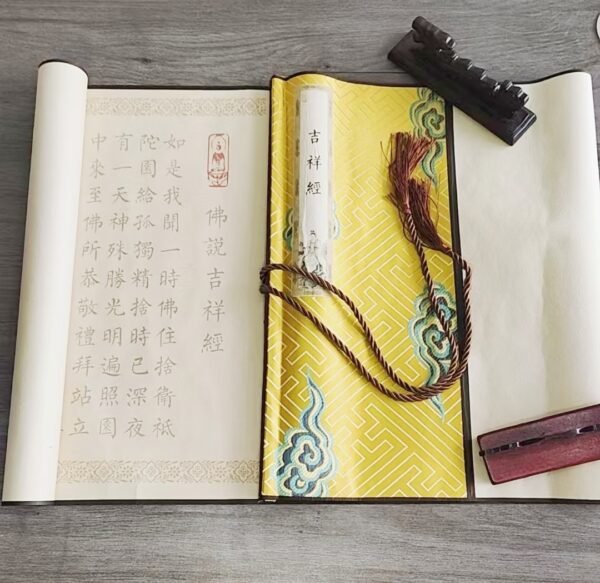 佛說吉祥經
如是我聞一時佛住捨衛祗
陀園給孤獨精捨時已深夜
有一天神殊勝光明遍照園
中來至佛所恭敬禮拜站立
吉祥經